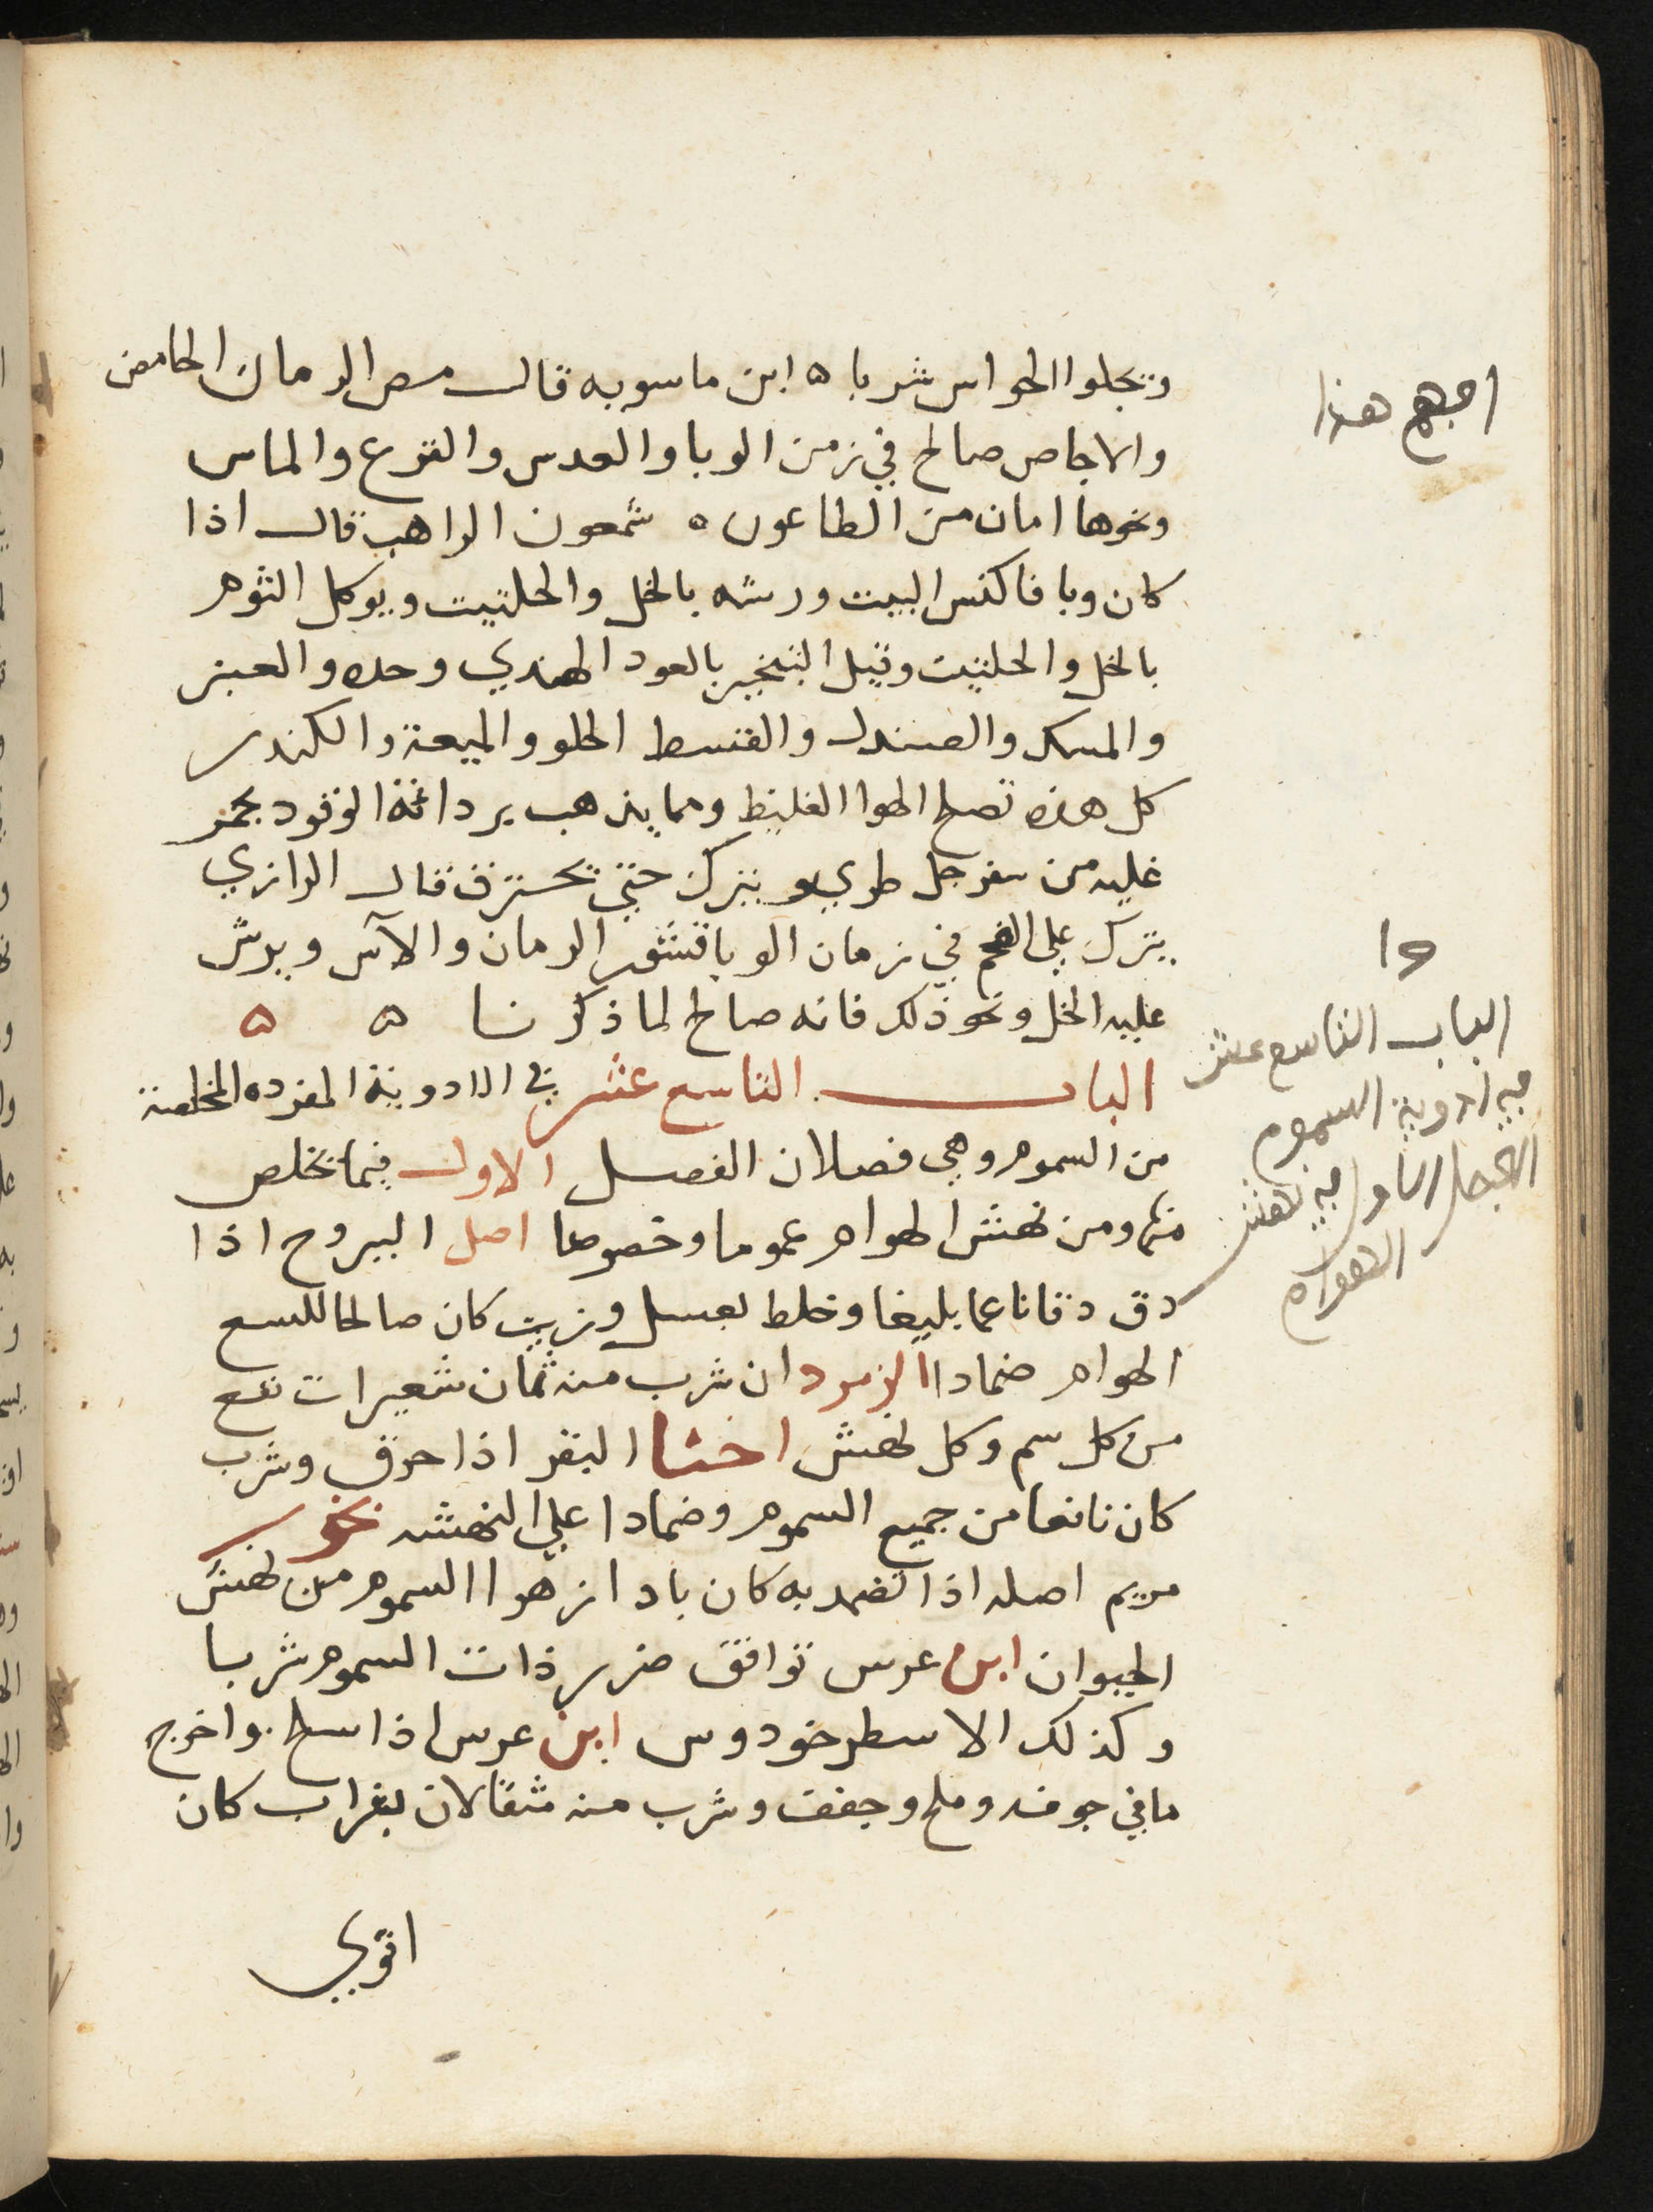 وتجلوا الحواس شربا ٥ ابن ماسويه قال مص الرمان الحامض
والاجاص صالح في زمن الوبا والعدس والقرع والماس
ونحوها امان من الطاعون ٥ شمعون الراهب قال اذا
كان وبا فاكنس البيت ورشه بالخل والحلتيت ويوكل الثوم
بالخل والحلتيت وقيل التبخير بالعود الهندي وحده والعنبر
والمسك والصندل والقسط الحلو والميعة والكندر
كل هذه تصلح الهوا الغليظ ومما يذهب برداءة الوقود بجمر
غليه من سفرجل طري ويترك حتي تحترق قال الرازي
يترك علي الفحم في زمان الوبا قشور الرمان والآس ويرش
عليه الخل ونحو ذلك فانه صالح لما ذكرنا ٥ ٥
الباب التاسع عشر في الادوية المفرده المخلصة
من السموم وهي فصلان الفصل الاول فيما تخلص
منها ومن نهش الهوام عموما وخصوصا اصل اليبروح اذا
دق دقا ناعما بليغا وخلط بعسل وزيت كان صالحا للسع
الهوام ضمادا الزمرد ان شرب منه ثمان شعيرات نفع
من كل سم وكل نهش اخثا البقر اذا حرق وشرب
كان نافعا من جميع السموم وضمادا علي النهشه بخور
مريم اصله اذا تضمد به كان باد ازهرا السموم من نهش
الحيوان ابن عرس توافق ضرر ذات السموم شربا
وكذلك الاسطرخودوس ابن عرس اذا سلخ واخرج
ما في جوفه وملح وجفف وشرب منه مثقالان بشراب كان
اقوي
هذا
١٩
الباب التاسع عشر
في ادوية السموم
الفصل الاول في نهش
الهوام